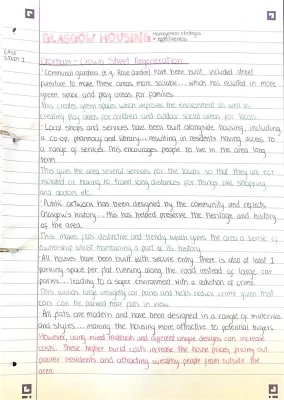 GLASGOW HOUSING - Management strategies + effectiveness
CASE
STUDY 1
Gorbals - Crown Street Regeneration
• Communal gardens (e.g. Rose Garden) have been built, included street
furniture to make these areas more sociable... which has resulted in more
green space and play areas for families.
This creates green spaces which improves the environment as well as
creating play areas for children and outdoor social areas for locals.
• Local shops and services have been built alongside housing, including
a co-op, pharmacy and library... resulting in residents having access to
a range of services. This encourages people to live in the area long
term.
This gives the area several services for the locals so that they are not
isolated or having to travel long distances for things like shopping
and doctors etc.
• Public artwork has been designed by the community and reflects
Glasgow's history... this has helped preserve the heritage and history
of the area.
This makes flats distinctive and trendy which gives the area a sense of
ownership whilst maintaining part of its history.
• All houses have been built with secure entry. There is also at least 1
parking space per flat running along the road instead of large car
parks... leading to a safer environment with a reduction of crime.
This avoids large unsightly car parks and helps reduce crime given that
cars can be parked near flats in view.
• All flats are modern and have been designed in a range of materials
and styles... making the housing more attractive to potential buyers.
However, using mixed materials and different unique designs can increase
costs. These higher build costs increase the house prices, pricing out
poorer residents and attracting wealthy people from outside the
area.